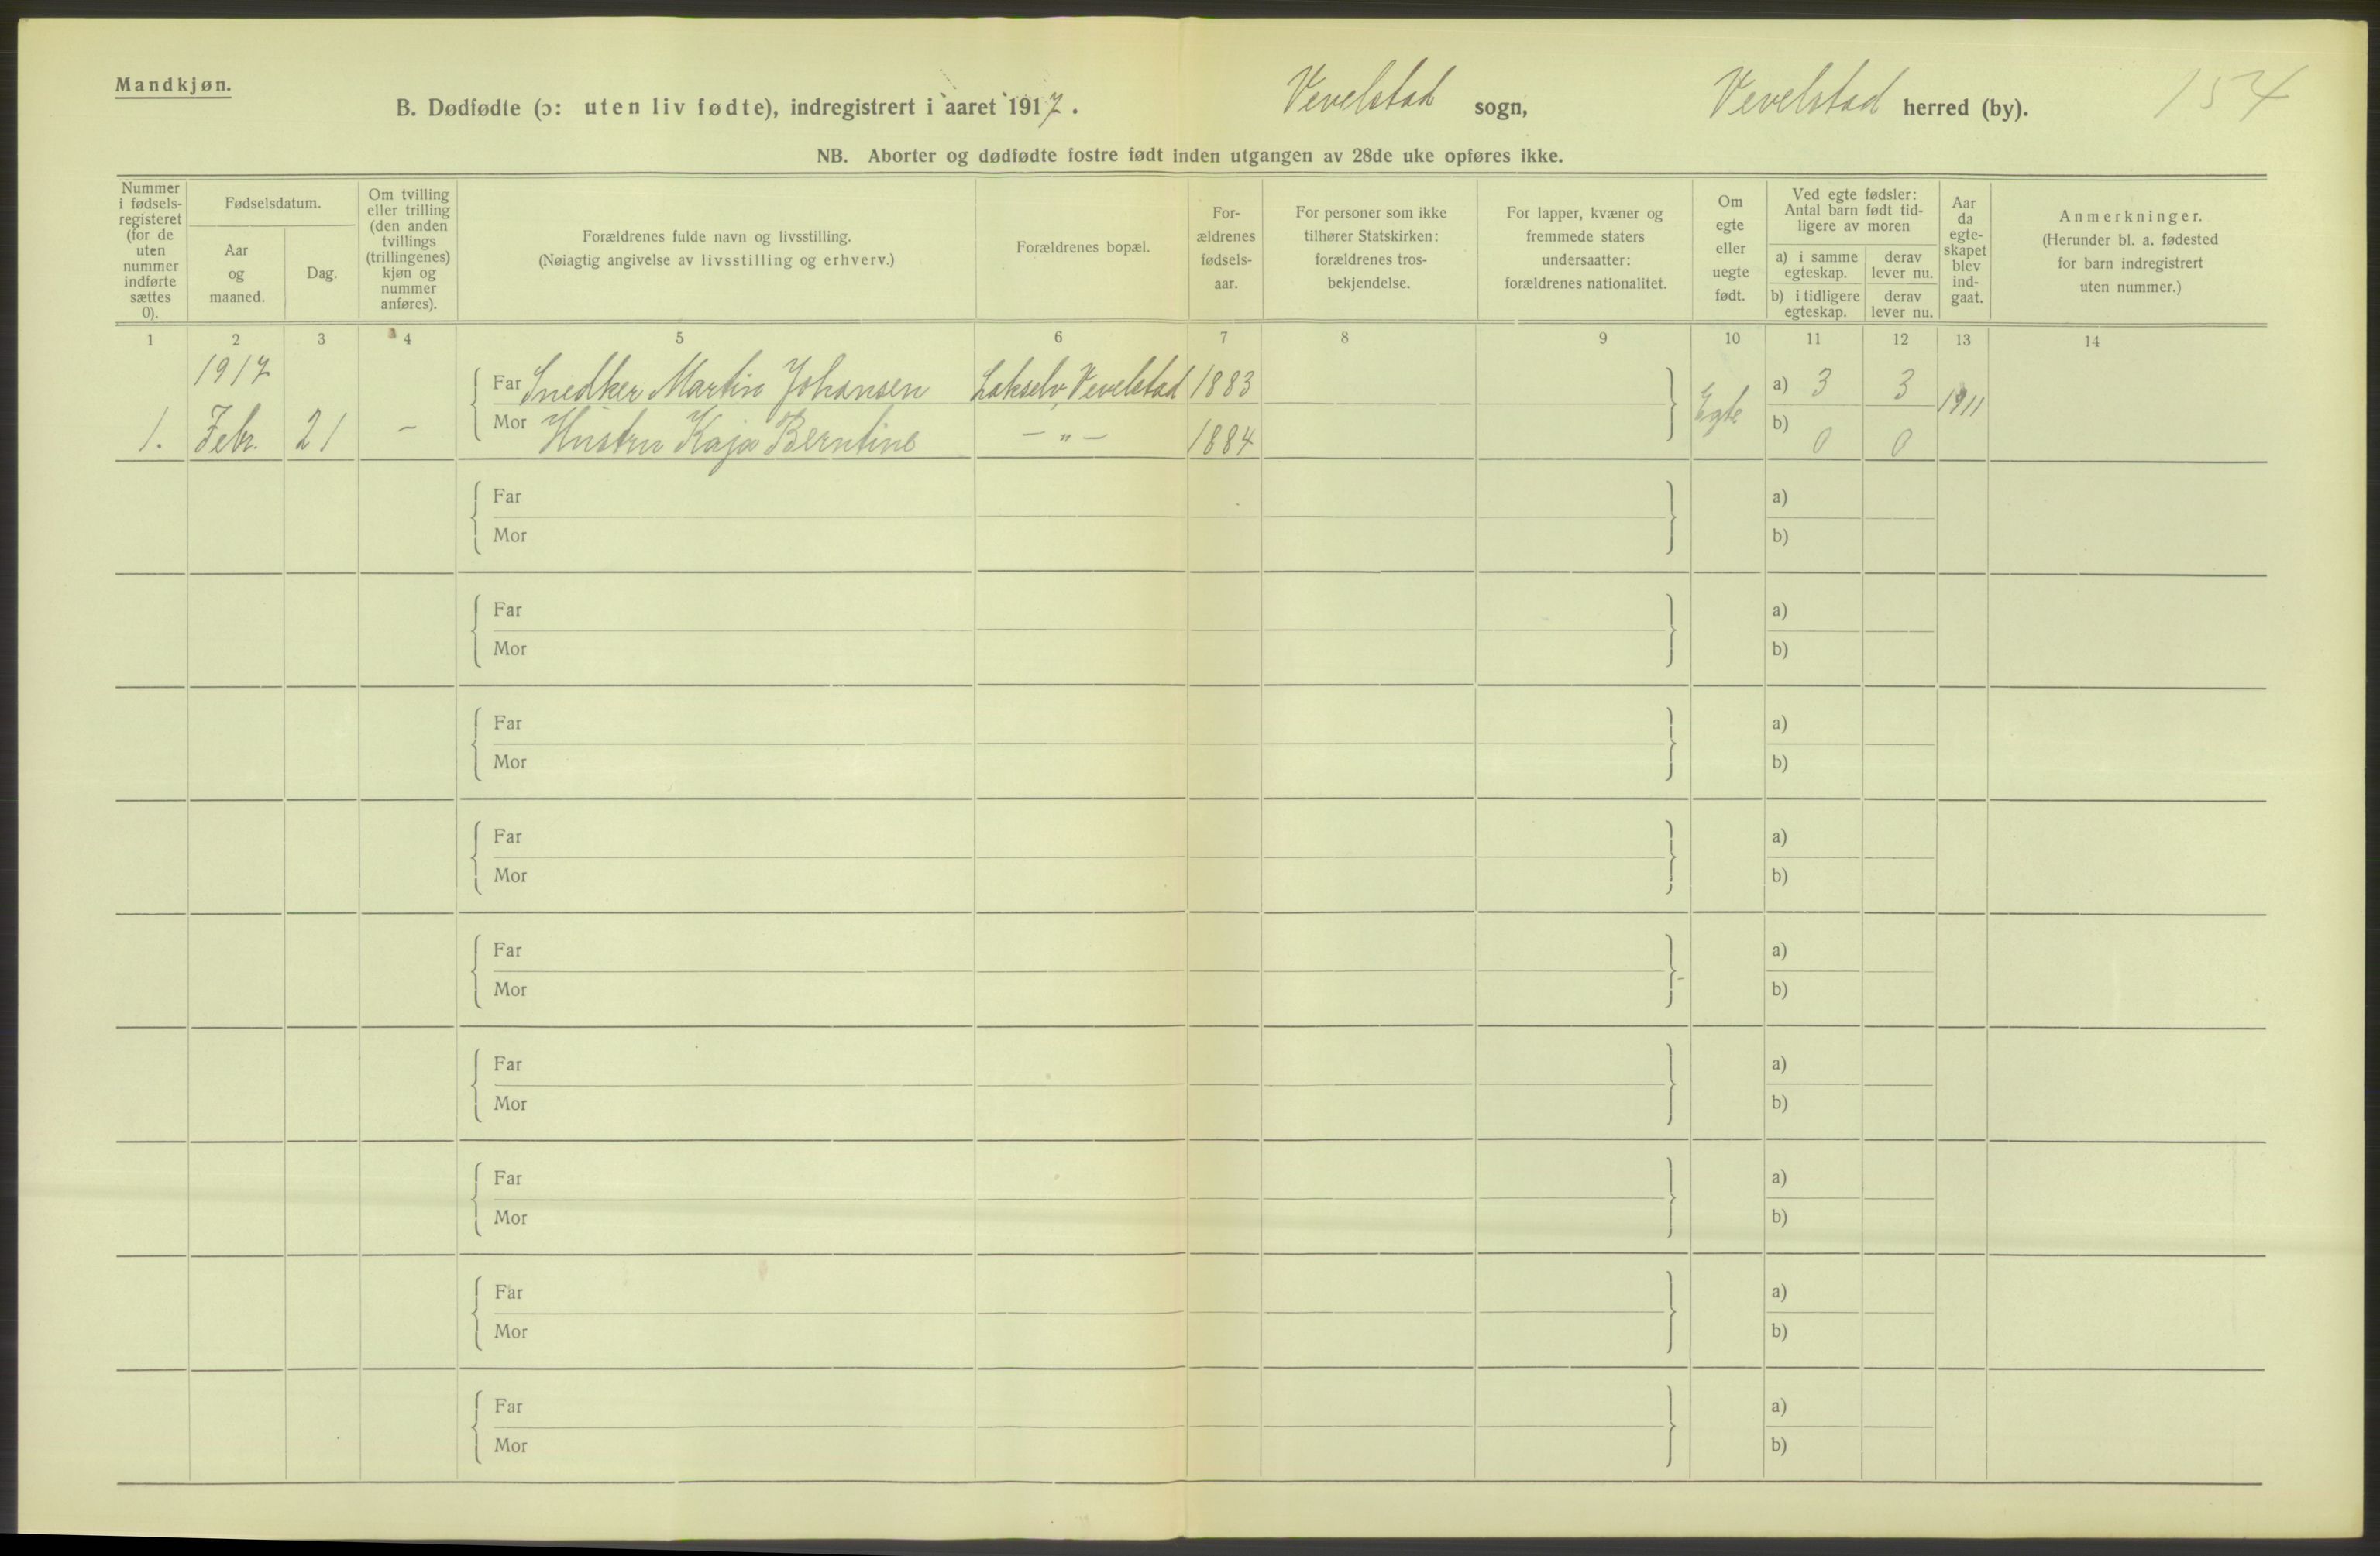 Mandkjøn.
B. Dødfødte (ɔ: uten liv fødte), indregistrert i aaret 1917. Vevelstad sogn, Vevelstad herred (by). 154
NB. Aborter og dødfødte fostre født inden utgangen av 28de uke opføres ikke.
Nummer
i fødsels-
registeret
(for de
uten
nummer
indførte
sættes
0).
Fødselsdatum.
Aar
og
maaned.
Dag.
Om tvilling
eller trilling
(den anden
tvillings
(trillingenes)
kjøn og
nummer
anføres).
Forældrenes fulde navn og livsstilling.
(Nøiagtig angivelse av livsstilling og erhverv.)
Forældrenes bopæl.
For-
ældrenes
fødsels-
aar.
For personer som ikke
tilhører Statskirken:
forældrenes tros-
bekjendelse.
For lapper, kvæner og
fremmede staters
undersaatter:
forældrenes nationalitet.
Om
egte
eller
uegte
født.
Ved egte fødsler:
Antal barn født tid-
ligere av moren
a) i samme
egteskap.
derav
lever nu.
b) i tidligere
egteskap.
derav
lever nu.
Aar
da
egte-
skapet
blev
ind-
gaat.
Anmerkninger.
(Herunder bl. a. fødested
for barn indregistrert
uten nummer.)
1 2 3 4 5 6 7 8 9 10 11 12 13 14
1917
Far Snedker Martin Johansen Lakselv, Vevelstad 1883 Egte a) 3 3 1911
1. Febr. 21 – Mor Hustru Kaja Berntine – " – 1884 b) 0 0
Far a)
Mor b)
Far a)
Mor b)
Far a)
Mor b)
Far a)
Mor b)
Far a)
Mor b)
Far a)
Mor b)
Far a)
Mor b)
Far a)
Mor b)
Far a)
Mor b)